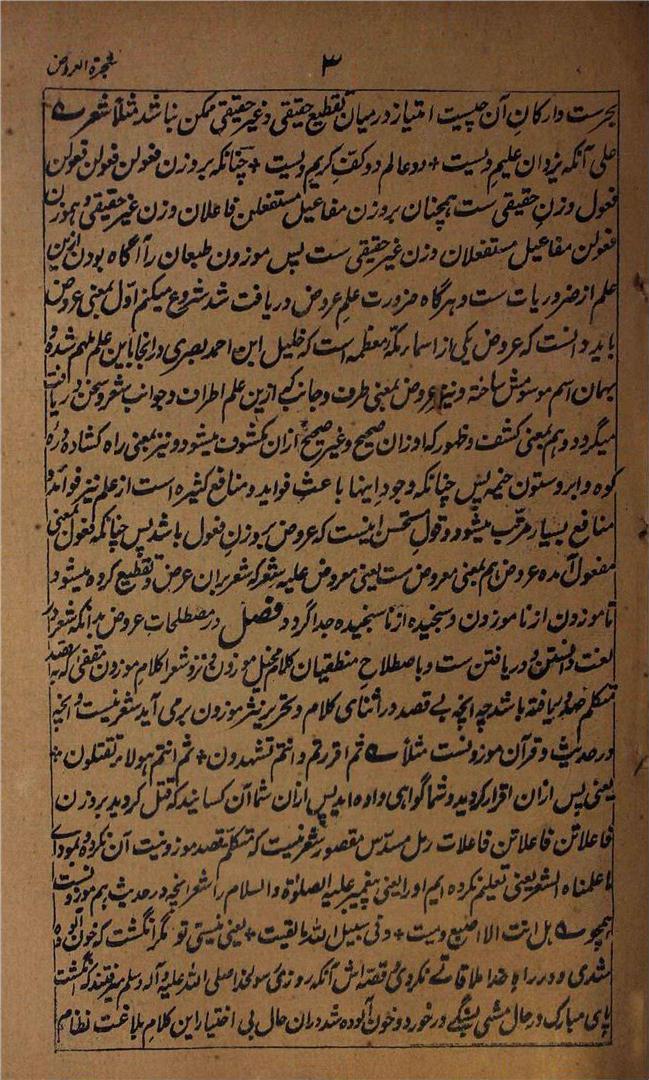 شجرة العروض
۳
بحرست وارکان آن چیست امتیاز درمیان تقطیع حقیقی و غیر حقیقی ممکن نباشد مثلاً شعر
علی آنکه یزدان علیم ویست + دو عالم دو کف کریم ویست + چنانکه بروزن فعولن فعولن فعولن
فعول وزن حقیقی ست همچنان بروزن مفاعیل مستفعلن فاعلان وزن غیر حقیقی و هموزن
فعولن مفاعیل مستفعلان وزن غیر حقیقی ست پس موزون طبعان را آگاه بودن ازین
علم از ضروریات ست و هرگاه ضرورت علم عروض دریافت شد شروع میکنم اول بمعنی عروض
باید دانست که عروض یکی از اسماء مکهٔ معظمه است که خلیل ابن احمد بصری در انجا باین علم ملهم شده و
بهمان اسم موسومش ساخته و نیز عروض بمعنی طرف و جانب که ازین علم اطراف و جوانب شعر و سخن دریافت
میگردد و هم بمعنی کشف و ظهور که اوزان صحیح و غیر صحیح ازان مکشوف میشود و نیز بمعنی راه کشاده درهٔ
کوه و ابر و ستون خیمه پس چنانکه وجود اینها باعث فواید و منافع کثیره است از علم نیز فوائد و
منافع بسیار مرتب میشود و قول مستحسن اینست که عروض بروزن فعول باشد پس چنانکه فعول بمعنی
مفعول آمده عروض هم بمعنی معروض ست یعنی معروض علیه شعر که شعر بران عرض و تقطیع کرده میشود
تا موزون از ناموزون و سنجیده از ناسنجیده جدا گردد فصل در مصطلحات عروض بدانکه شعر در
لغت دانستن و دریافتن ست و باصطلاح منطقیان کلام مخیل موزون و نزد شعرا کلام موزون مقفی که به قصد
متکلم صدور یافته باشد چه انچه بی قصد در اثنای کلام و تحریر نثر موزون برمی آید شعر نیست و انچه
در حدیث و قرآن موزونست مثلاً ثم اقررتم و انتم تشهدون + ثم انتم هولاء تقتلون +
یعنی پس ازان اقرار کردید و شما گواهی داده اید پس ازان شما آن کسانید که قتل کردید بروزن
فاعلاتن فاعلاتن فاعلات رمل مسدس مقصور شعر نیست که متکلم قصد موزونیت آن نکرده و بمودای
ما علمناه الشعر یعنی تعلیم نکرده ایم او را یعنی پیغمبر علیه الصلوة و السلام را شعر انچه در حدیث هم موزونست
همچو هل انت الا اصبع دمیت + و فی سبیل الله ما لقیت + یعنی نیستی تو مگر انگشت که خون آلوده
شدی و در راه خدا ملاقات نکردی قصه اش آنکه روزی رسولخدا صلی الله علیه و آله وسلم میرفتند که انگشت
پای مبارک در حال مشی بسنگی در خورد و خون آلوده شد دران حال بی اختیار این کلام بلاغت نظام